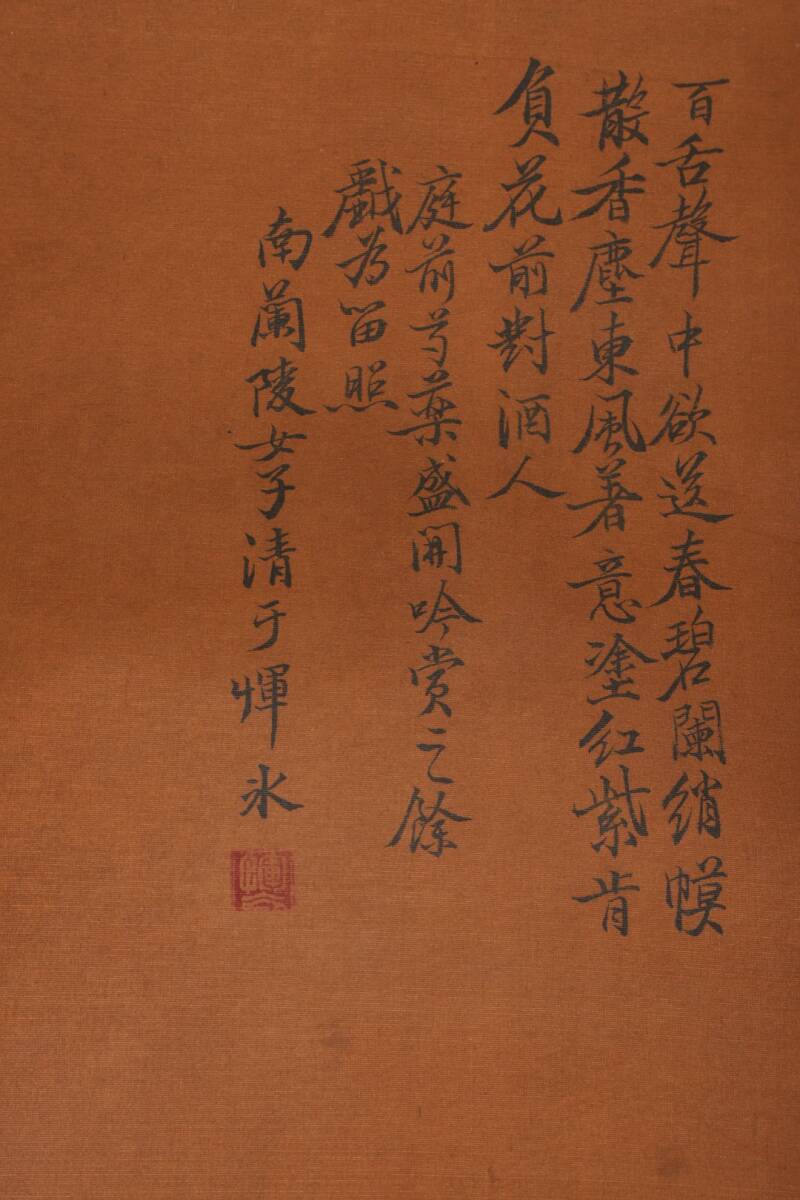 百舌聲中欲送春碧闌綃幙
散香塵東風著意塗紅紫肯
負花前對酒人
庭前芍藥盛開吟賞之餘
戲為留照
南蘭陵女子清于惲冰